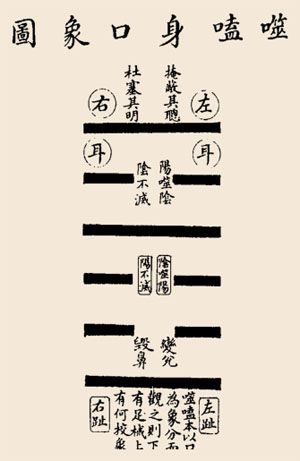 噬嗑身口象圖
左
掩蔽其聰
杜塞其明
右
耳
陽噬陰
陰不滅
耳
陰噬陽
陽不滅
變兌
毀鼻
左趾
噬嗑本以口
為象分而
觀之則下
有足械上
有何校象
右趾